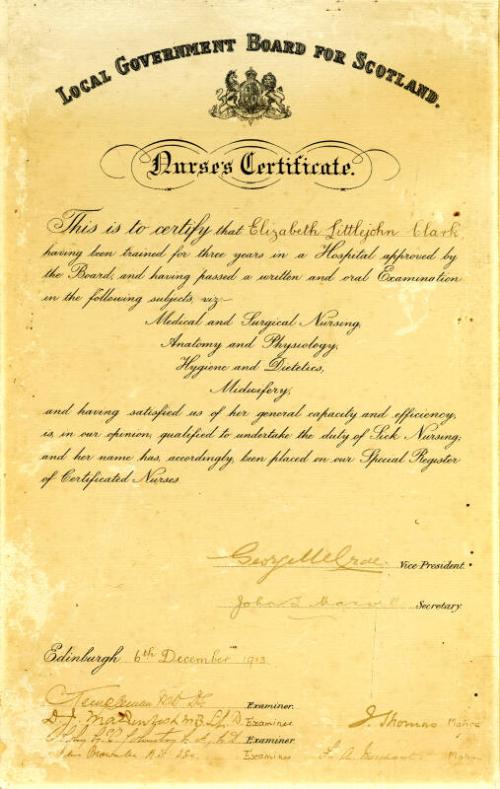 LOCAL GOVERNMENT BOARD FOR SCOTLAND.
Nurse's Certificate.
This is to certify that Elizabeth Littlejohn Clark
having been trained for three years in a Hospital approved by
the Board, and having passed a written and oral Examination
in the following subjects, viz-
Medical and Surgical Nursing,
Anatomy and Physiology,
Hygiene and Dietetics,
Midwifery,
and having satisfied us of her general capacity and efficiency,
is, in our opinion, qualified to undertake the duty of Sick Nursing;
and her name has, accordingly, been placed on our Special Register
of Certificated Nurses
George McCrae. Vice-President.
John Secretary.
Edinburgh 6th December 1913
Examiner.
D. J. Mackintosh M.B. LL.D. Examiner
Johnston Examiner
Examiner
J. Thomas Matron
Matron